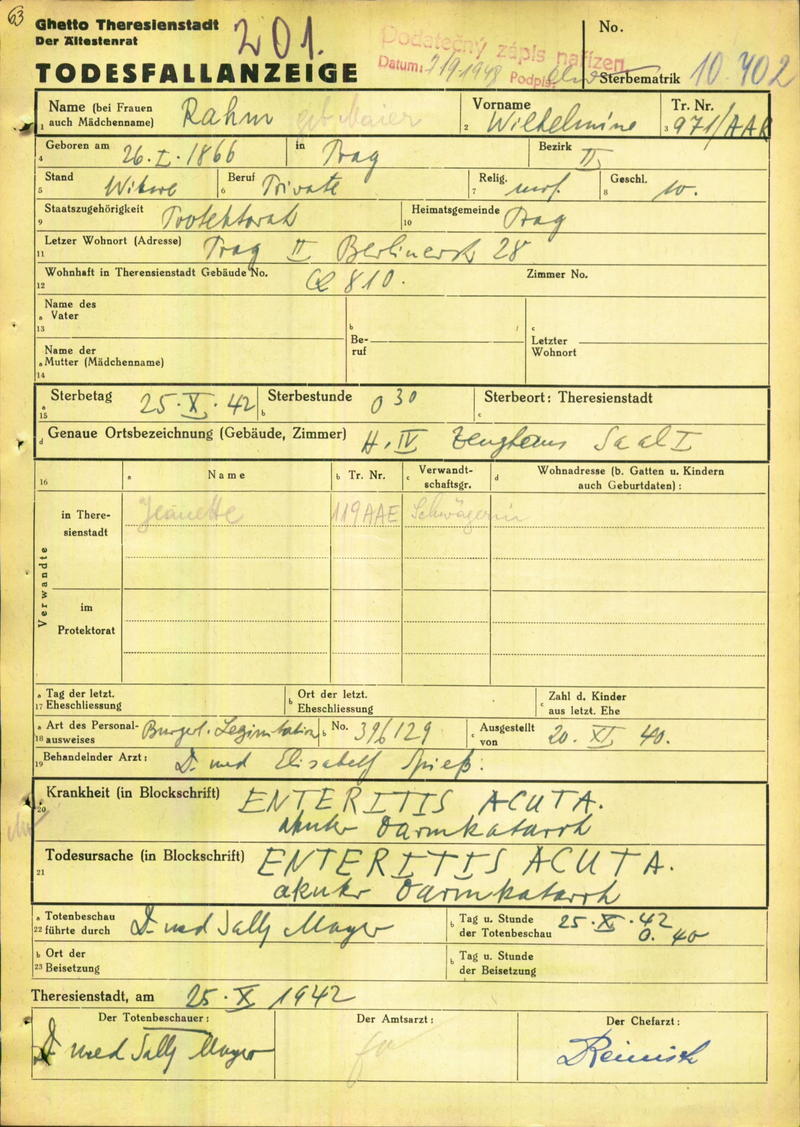 63
Ghetto Theresienstadt
Der Ältestenrat
201.
TODESFALLANZEIGE
Dodatečný zápis nařízen
Datum:
Podpis:
No.
Sterbematrik 10.402
Name (bei Frauen auch Mädchennamen) Rahm geb Maier
Vorname Wilhelmine
Tr. Nr. 971/AAl
Geboren am 26.I.1866 in Prag Bezirk II
Stand Witwe Beruf Private Relig. Geschl. w.
Staatszugehörigkeit Protektorat Heimatsgemeinde Prag
Letzer Wohnort (Adresse) Prag II Berlinerstr 28
Wohnhaft in Therensienstadt Gebäude No. 810. Zimmer No.
Name des Vater
Beruf
Letzter Wohnort
Name der Mutter (Mädchenname)
Sterbetag 25.X.42 Sterbestunde 0 30 Sterbeort: Theresienstadt
Genaue Ortsbezeichnung (Gebäude, Zimmer) H.IV Zeughaus Saal I
Name Tr. Nr. Verwandtschaftsgr. Wohnadresse (b. Gatten u. Kindern auch Geburtdaten):
Verwandte
in Theresienstadt Jeanette 119AAE Schwägerin
im Protektorat
Tag der letzt. Eheschliessung Ort der letzt. Eheschliessung Zahl d. Kinder aus letzt. Ehe
Art des Personalausweises Bürgerl. Legimitation No. 396129 Ausgestellt von 20. XII 40.
Behandelnder Arzt: Dr med Elisabeth Spieß.
Krankheit (in Blockschrift) ENTERITIS ACUTA.
akuter Darmkatarrh
Todesursache (in Blockschrift) ENTERITIS ACUTA.
akuter Darmkatarrh
Totenbeschau führte durch Dr med Sally Mayer Tag u. Stunde der Totenbeschau 25.X.42 0.40
Ort der Beisetzung Tag u. Stunde der Beisetzung
Theresienstadt, am 25.X 1942
Der Totenbeschauer: Der Amtsarzt: Der Chefarzt:
Dr med Sally Mayer